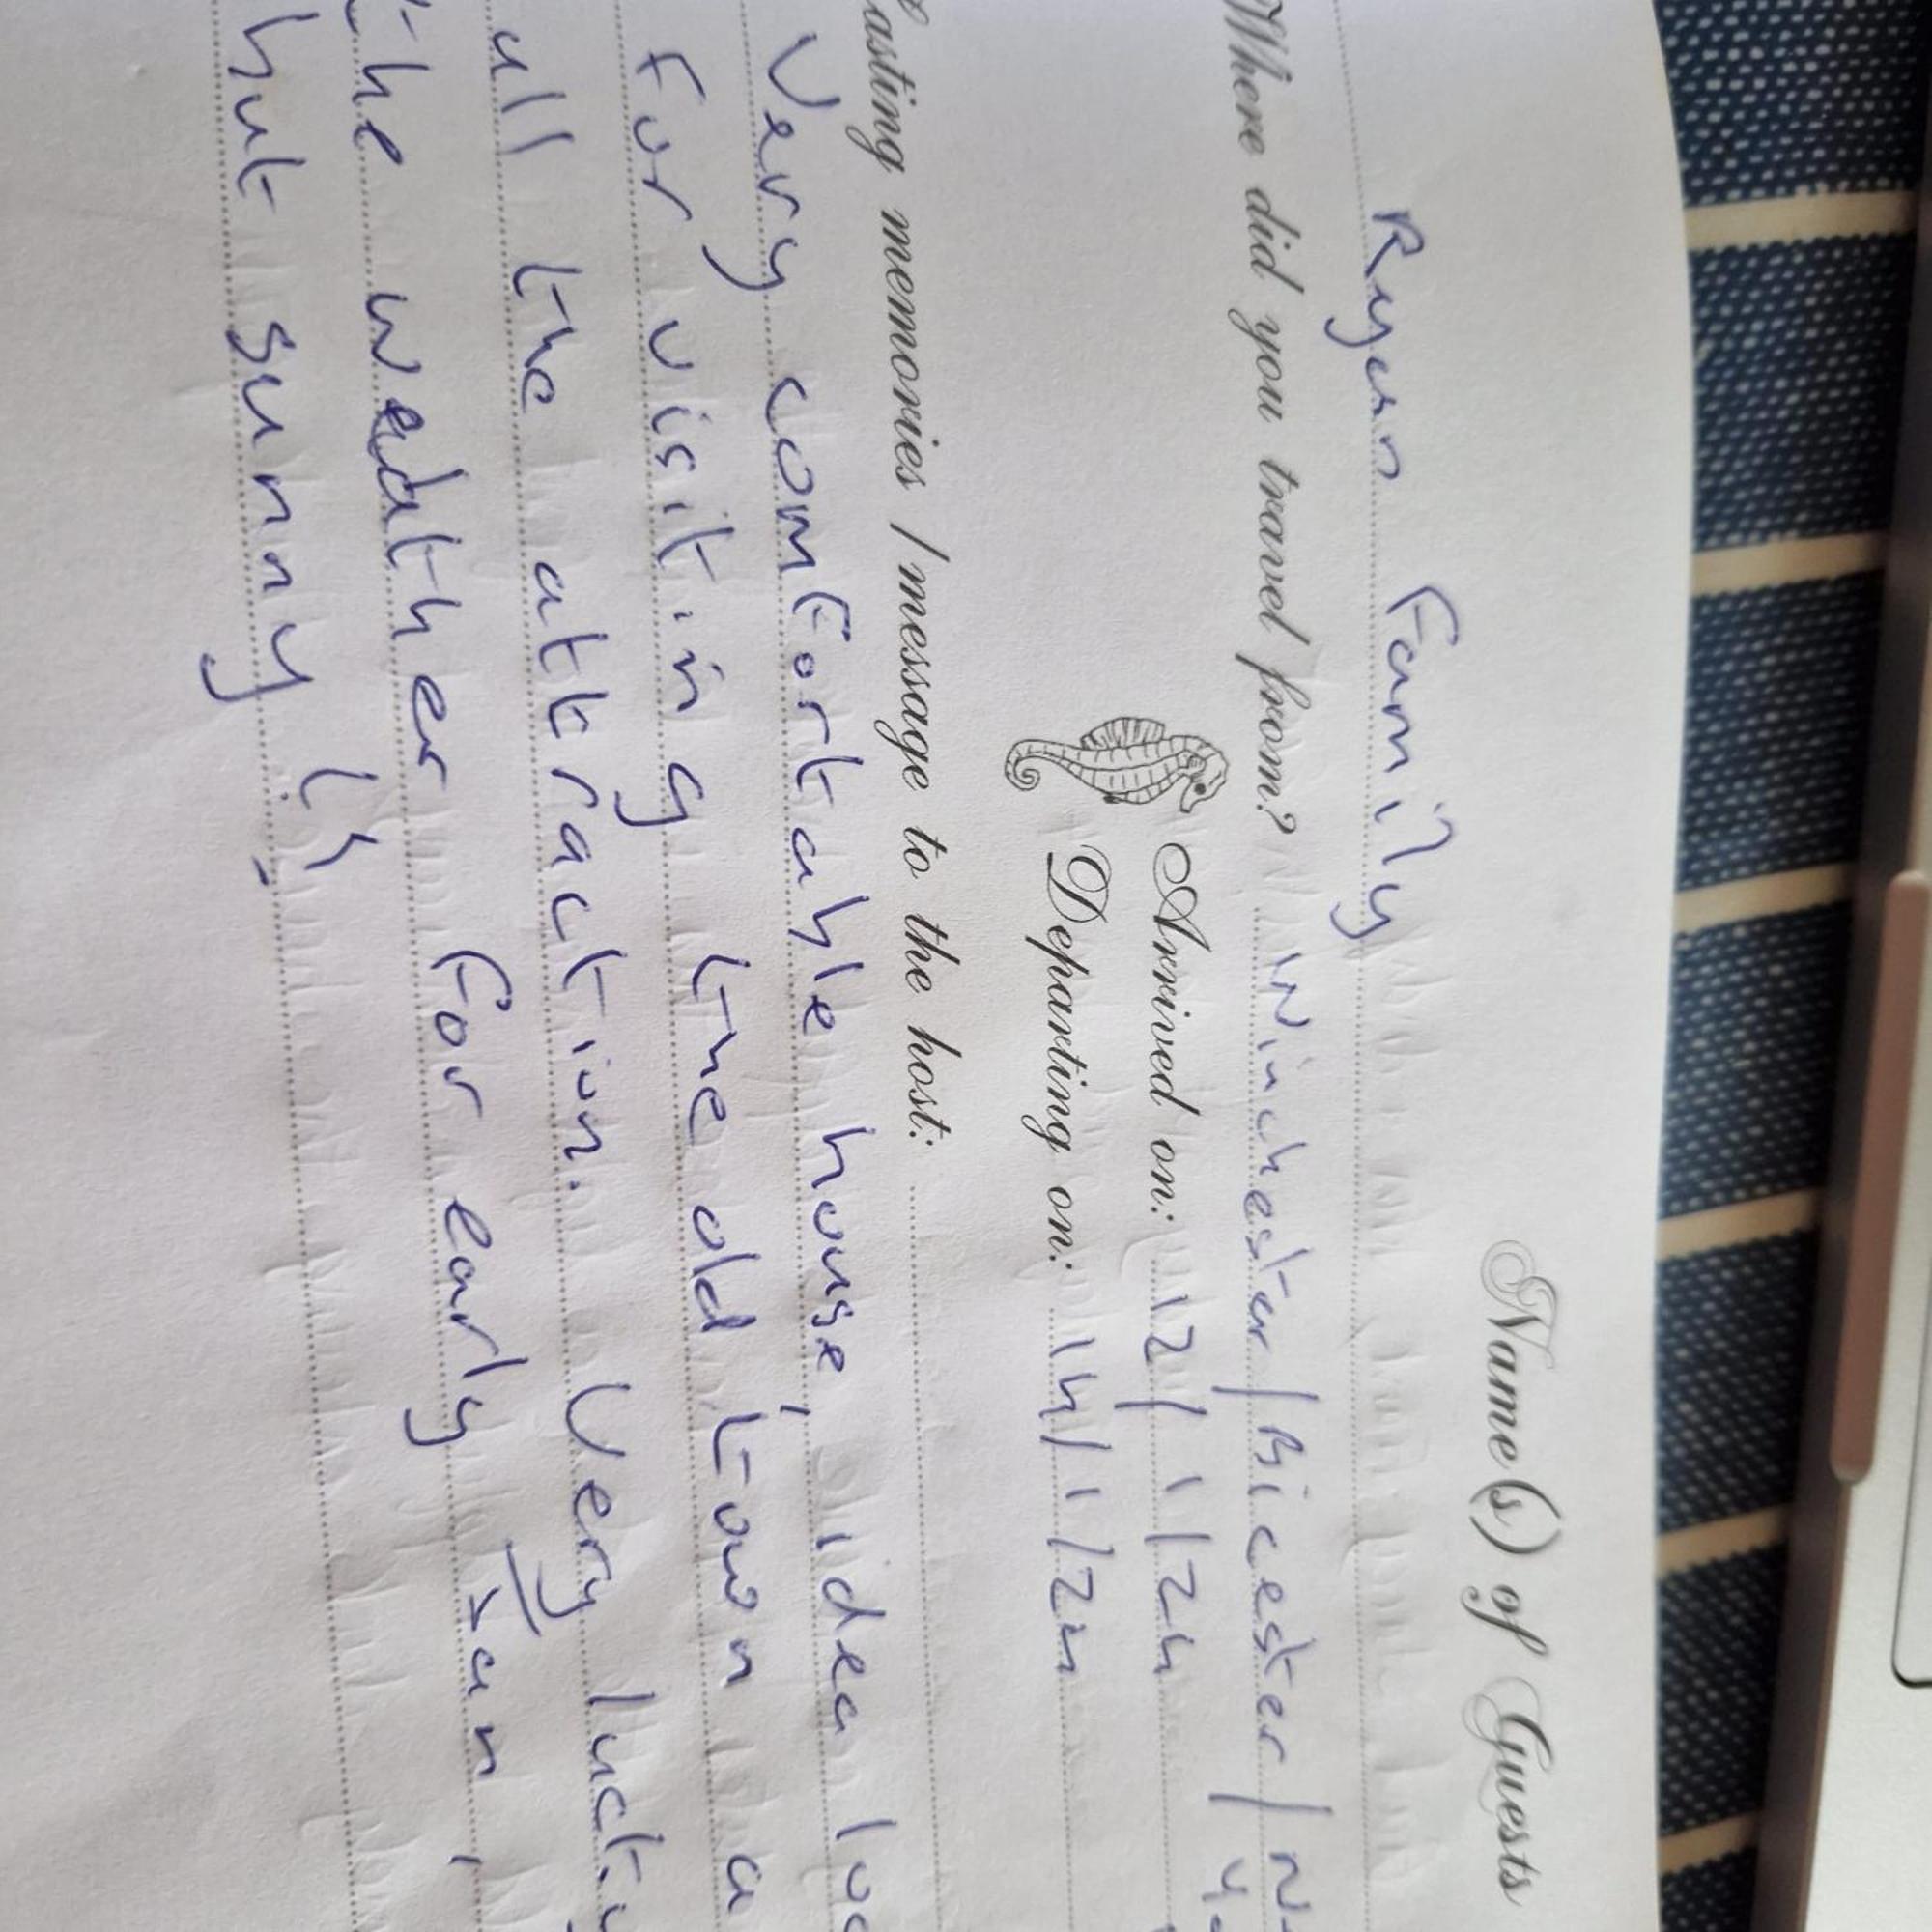 Name(s) of Guests
Ryan Family
Where did you travel from? Winchester / Bicester /
Arrived on: 12/1/24
Departing on: 14/1/24
Lasting memories / message to the host:
Very comfortable house, idea
for visiting the old town
all the attraction. Very
the weather for early Jan,
but sunny!